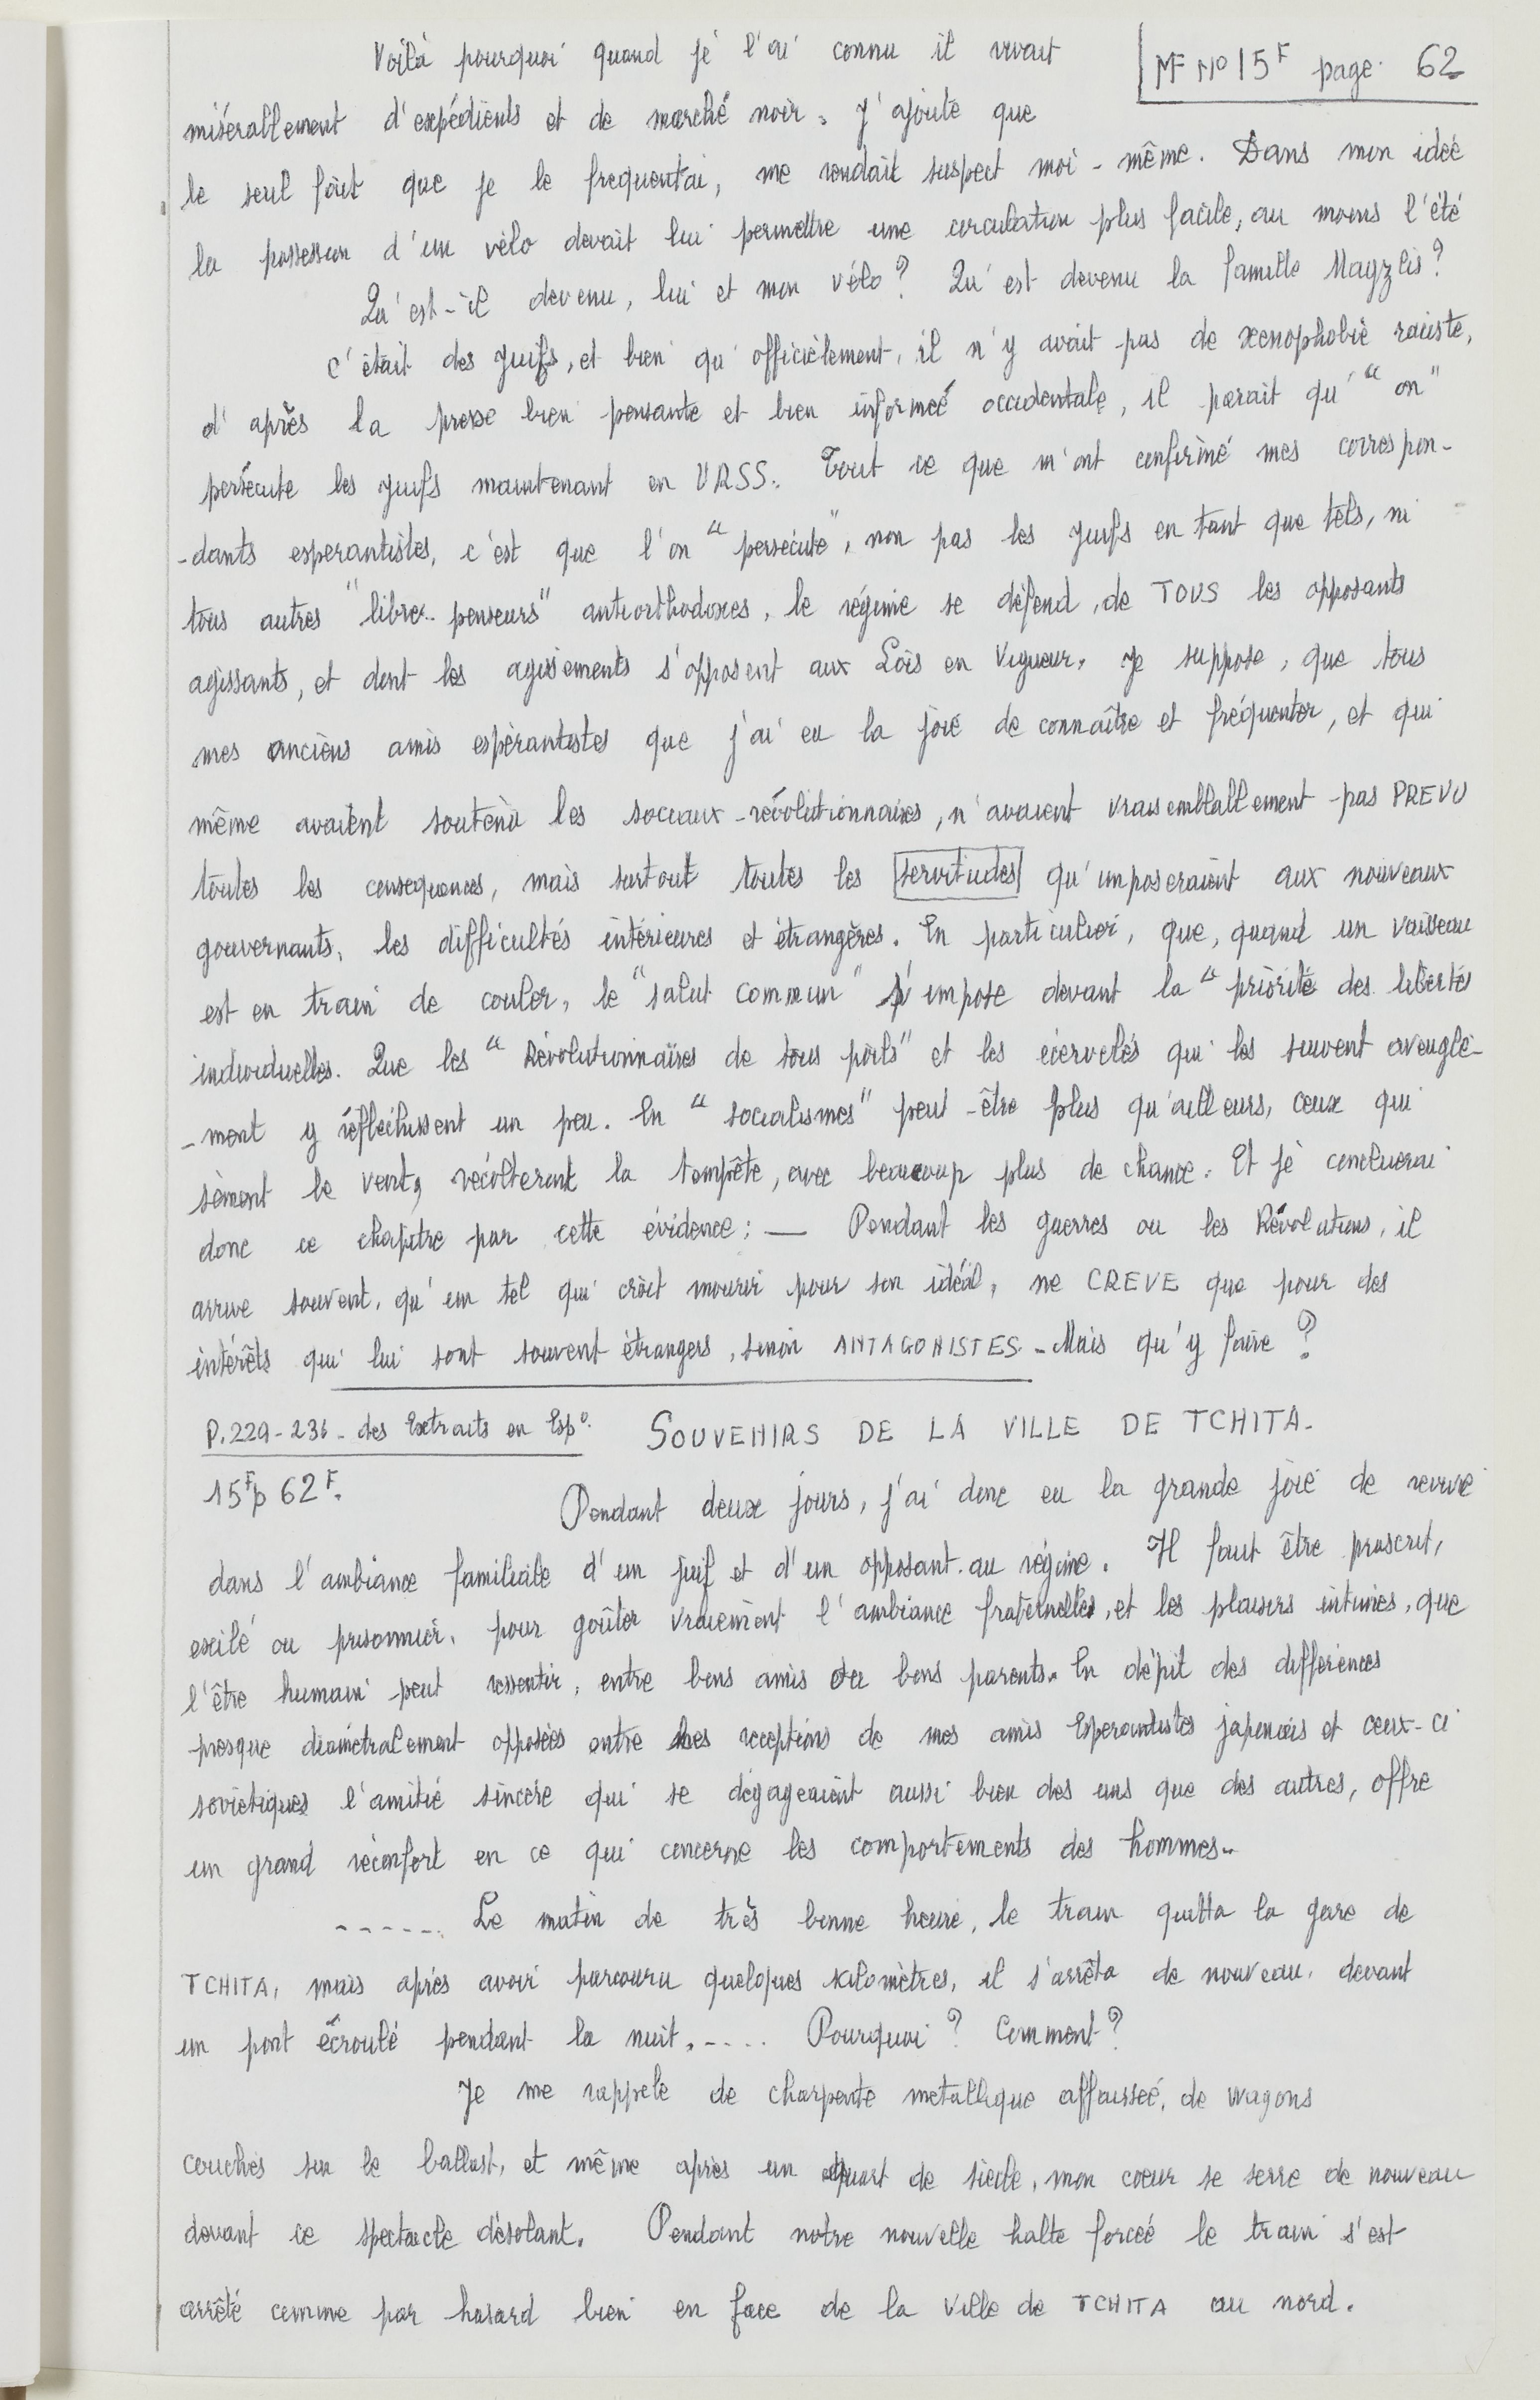 Voilà pourquoi quand je l'ai connu il vivait
MF No 15F page 62
misérablement d'expédients et de marché noir. J'ajoute que
le seul fait que je le frequentai, me rendait suspect moi-même. Dans mon idée
la possession d'un vélo devait lui permettre une circulation plus facile, au moins l'été
Qu'est-il devenu, lui et mon vélo ? Qu'est devenu la famille Magzlis ?
C'était des juifs, et bien qu'officièlement, il n'y avait pas de xenophobie raciste,
d'après la presse bien pensante et bien informeé occidentale, il parait qu'"on"
persécute les juifs maintenant en URSS. Tout ce que m'ont confirmé mes correspon-
-dants esperantistes, c'est que l'on "persécute", non pas les juifs en tant que tels, ni
tous autres "libres-penseurs" antiorthodoxes, le régime se défend, de TOUS les opposants
agissants, et dont les agissements s'opposent aux Lois en Vigueur. Je suppose, que tous
mes anciens amis espérantistes que j'ai eu la joie de connaître et fréquenter, et qui
même avaient soutenu les sociaux-révolutionnaires, n'avaient vraisemblablement pas PREVU
toutes les consequences, mais surtout toutes les servitudes qu'imposeraient aux nouveaux
gouvernants, les difficultés intérieures et étrangères. En particulier, que, quand un vaisseau
est en train de couler, le "salut commun" s'impose devant la "priorité des libertés
individuelles. Que les "Révolutionnaires de tous poils" et les écervelés qui les suivent aveuglé-
-ment y réfléchissent un peu. En "socialismes" peut-être plus qu'ailleurs, ceux qui
sèment le vent, récolteront la tempête, avec beaucoup plus de chance. Et je concluerai
donc ce chapitre par cette évidence : — Pendant les guerres ou les Révolutions, il
arrive souvent, qu'un tel qui croit mourir pour son idéal, ne CREVE que pour des
intérêts qui lui sont souvent étrangers, sinon ANTAGONISTES. - Mais qu'y faire ?
P. 229-236 - des Extraits en Espo.
SOUVENIRS DE LA VILLE DE TCHITA.
15F p 62F.
Pendant deux jours, j'ai donc eu la grande joie de revivre
dans l'ambiance familiale d'un juif et d'un opposant au régime. Il faut être proscrit,
exilé ou prisonnier, pour goûter vraiement l'ambiance fraternelle, et les plaisirs intimes, que
l'être humain peut ressentir, entre bons amis ou bons parents. En dépit des differences
presque diamétralement opposées entre les receptions de mes amis Esperantistes japonais et ceux-ci
soviétiques l'amitié sincère qui se dégageaient aussi bien des uns que des autres, offre
un grand réconfort en ce qui concerne les comportements des hommes..
------. Le matin de très bonne heure, le train quitta la gare de
TCHITA, mais après avoir parcouru quelques kilomètres, il s'arrêta de nouveau, devant
un pont écroulé pendant la nuit.----. Pourquoi ? Comment ?
Je me rappele de charpente metallique affaisseé, de wagons
couchés sur le ballast, et même après un quart de siècle, mon coeur se serre de nouveau
devant ce spectacle désolant. Pendant notre nouvelle halte forceé le train s'est
arrêté comme par hasard bien en face de la Ville de TCHITA au nord.